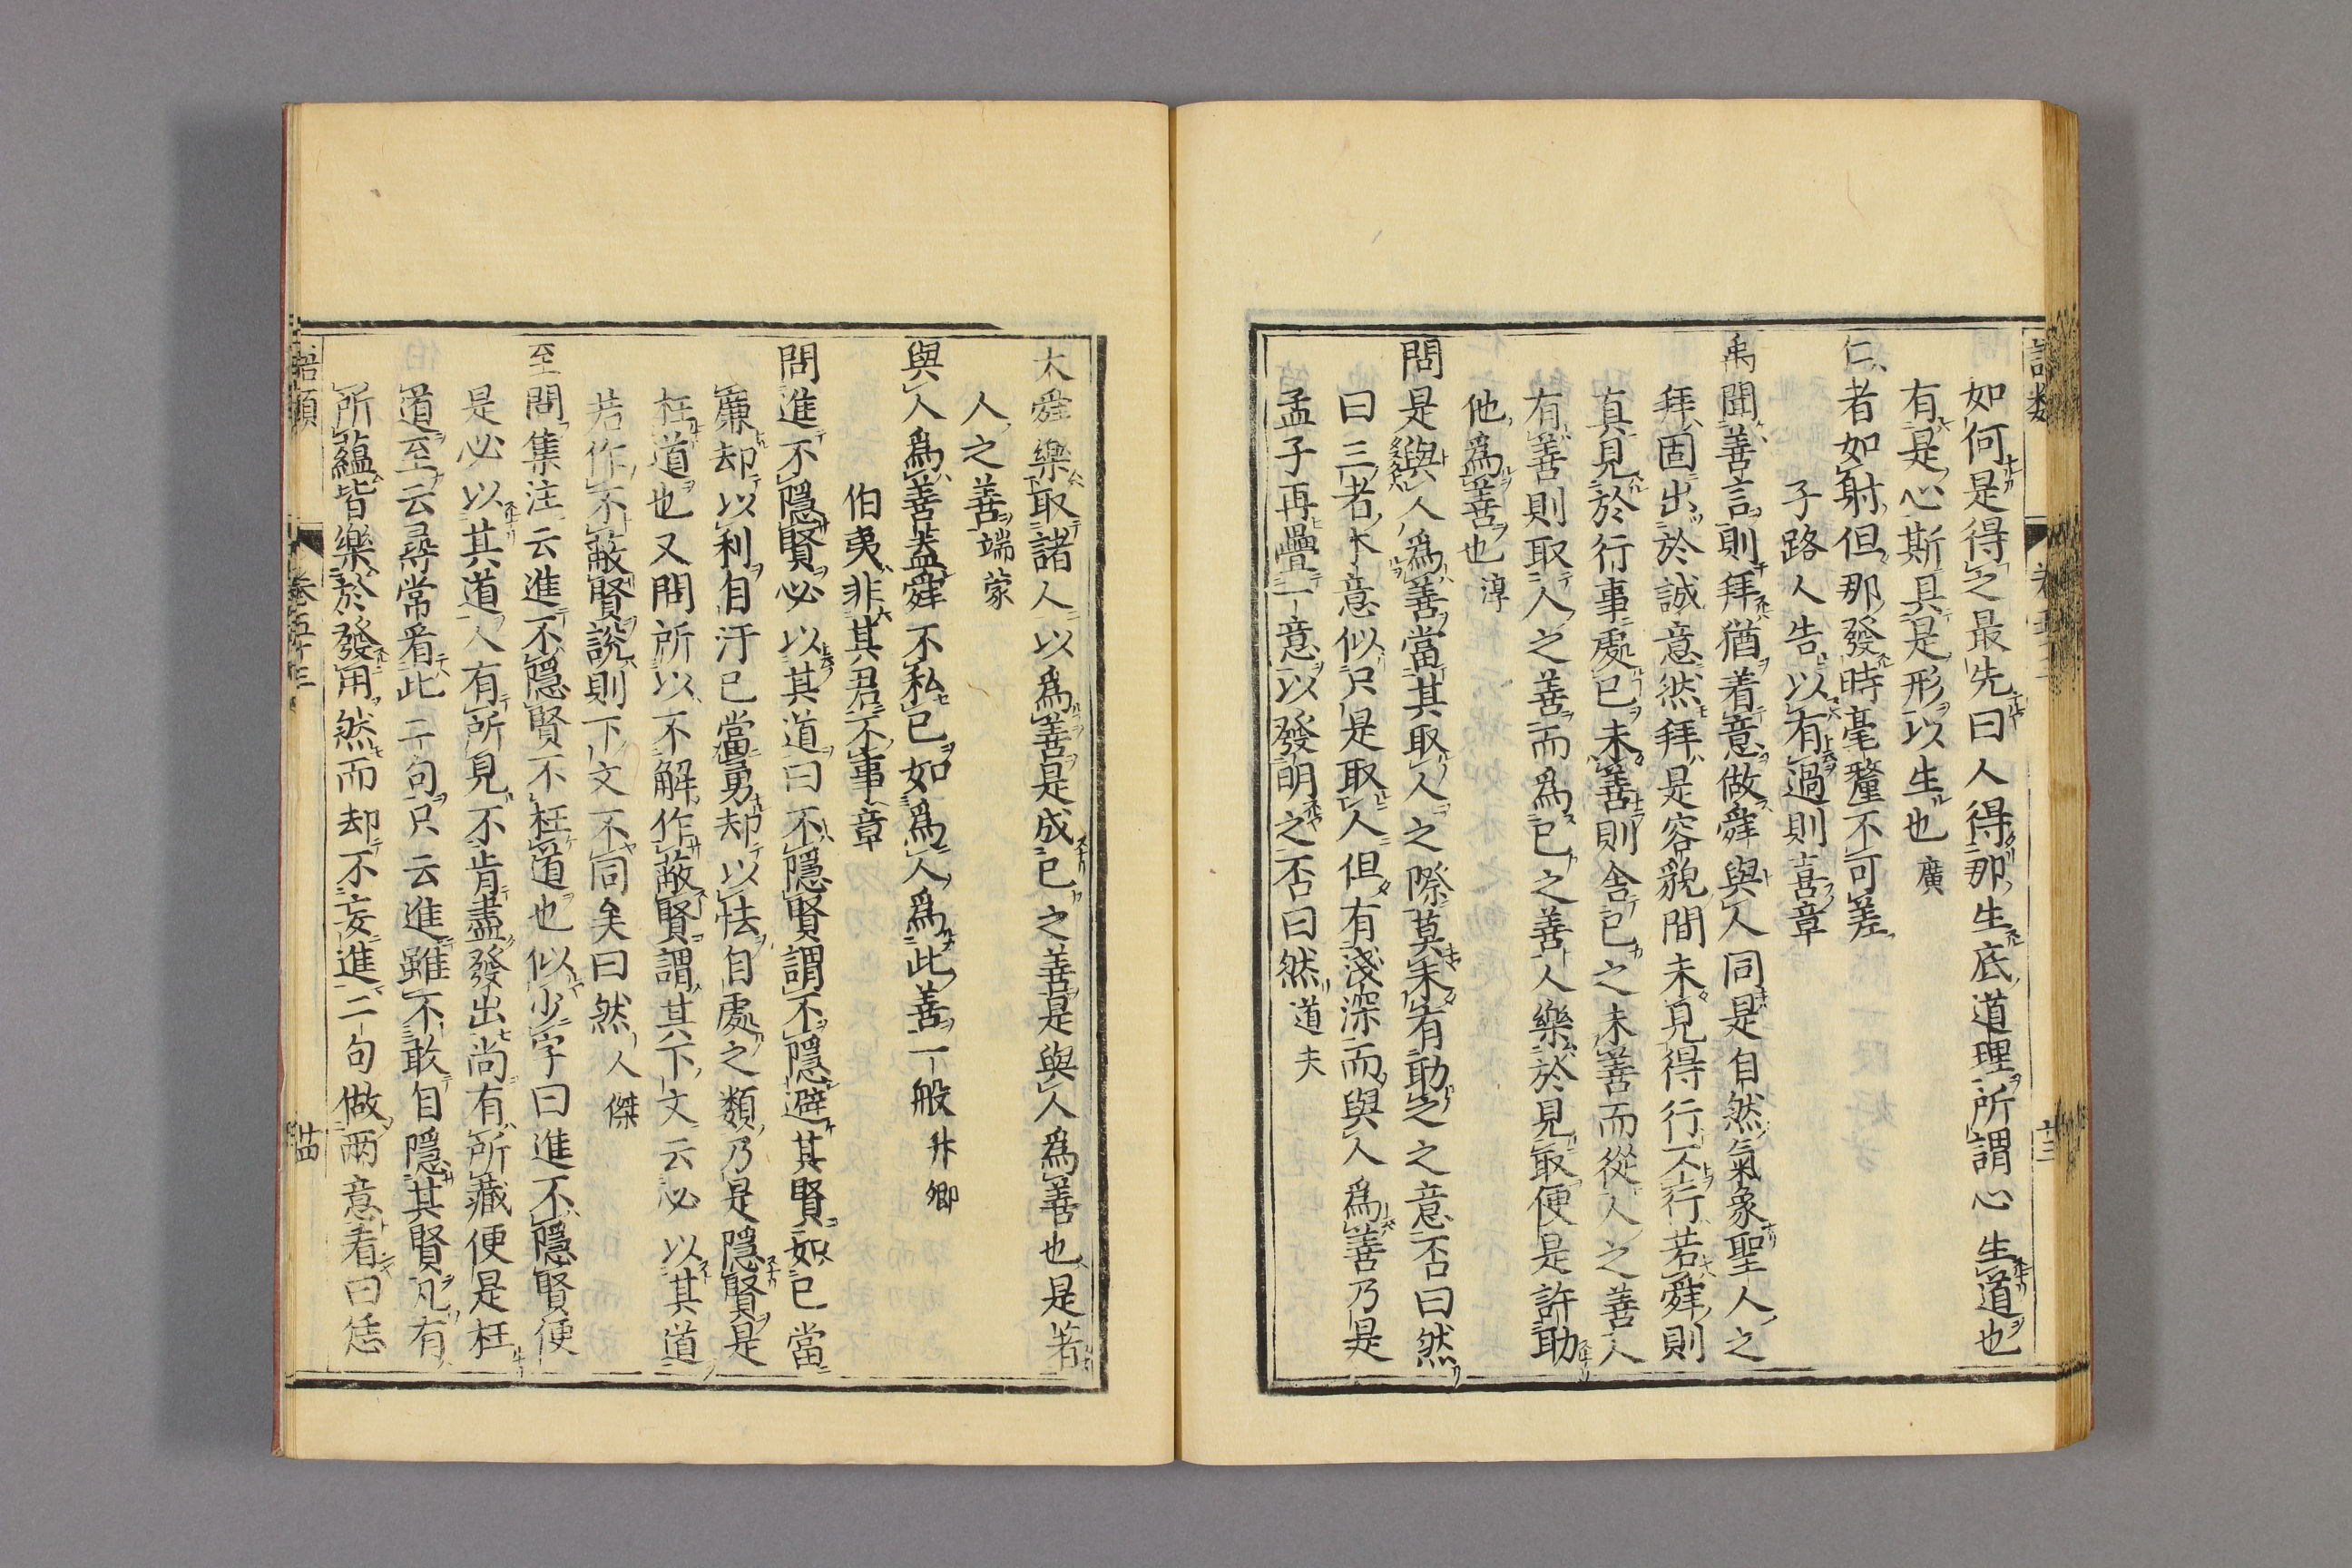 如何是得之最先曰人得那生底道理所謂心生道也
有是心斯具是形以生也廣
仁者如射但那發時毫釐不可差
子路人告以有過則喜章
禹聞善言則拜猶着意做舜與人同是自然氣象聖人之
拜固出於誠意然拜是容貌間未見得行不行若舜則
真見於行事處已未善則舍已之未善而從人之善人
有善則取人之善而爲已之善人樂於見取便是許助
他爲善也淳
問是與人爲善當其取人之際莫未有助之之意否曰然
曰三者本意似只是取人但有淺深而與人爲善乃是
孟子再疊一意以發明之否曰然道夫
大舜樂取諸人以爲善是成已之善是與人爲善也是著
人之善端蒙
與人爲善盖舜不私已如爲人爲此善一般升卿
伯夷非其君不事章
問進不隱賢必以其道曰不隱賢謂不隱避其賢如已當
廉却以利自汙已當勇却以怯自處之類乃是隱賢是
枉道也又問所以不解作蔽賢謂其下文云必以其道
若作不蔽賢說則下文不同矣曰然人傑
至問集注云進不隱賢不枉道也似少字曰進不隱賢便
是必以其道人有所見不肯盡發出尚有所藏便是枉
道至云尋常看此二句只云進雖不敢自隱其賢凡有
所蘊皆樂於發用然而却不妄進二句做兩意看曰恁
語類
卷五十三
廿四